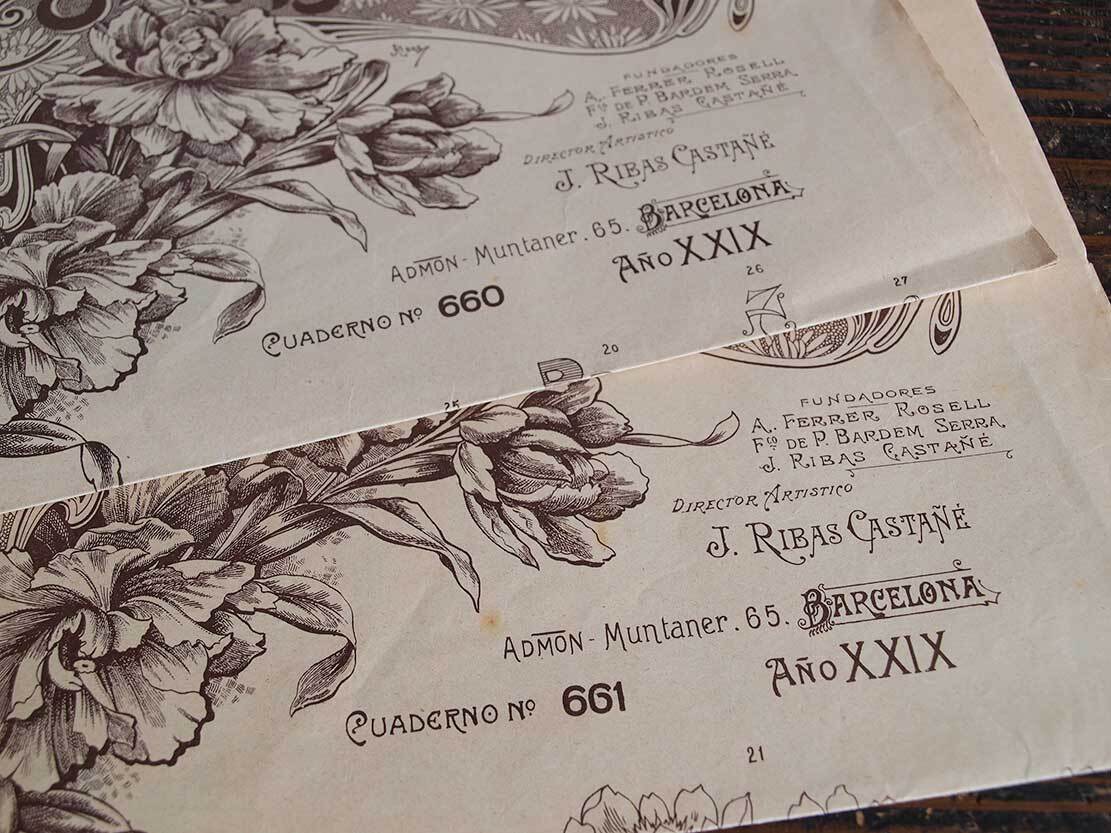 FUNDADORES
A. FERRER ROSELL
Fco DE P. BARDEM SERRA
J. RIBAS CASTAÑÉ
DIRECTOR ARTISTICO
J. RIBAS CASTAÑÉ
ADMÓN - MUNTANER. 65. BARCELONA
AÑO XXIX
CUADERNO Nº 660
26
27
20
25
FUNDADORES
A. FERRER ROSELL
Fco DE P. BARDEM SERRA.
J. RIBAS CASTAÑÉ
DIRECTOR ARTISTICO
J. RIBAS CASTAÑÉ
ADMÓN - MUNTANER. 65. BARCELONA
AÑO XXIX
CUADERNO Nº 661
21